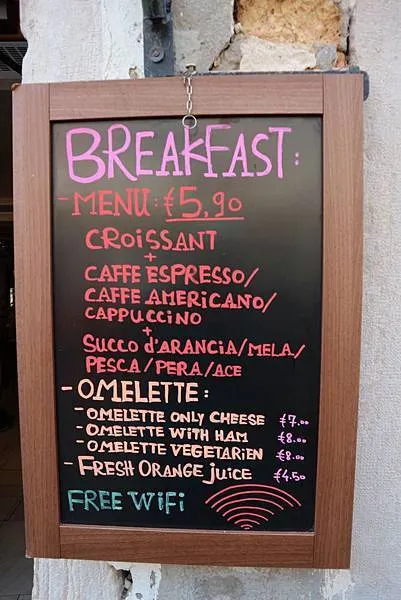 BREAKFAST:
-MENU: €5,90
CROISSANT
+
CAFFE ESPRESSO/
CAFFE AMERICANO/
CAPPUCCINO
+
SUCCO d'ARANCIA/MELA/
PESCA/PERA/ACE
-OMELETTE:
-OMELETTE ONLY CHEESE €7.00
-OMELETTE WITH HAM €8.00
-OMELETTE VEGETARIEN €8.00
-FRESH ORANGE JUICE €4.50
FREE WiFi